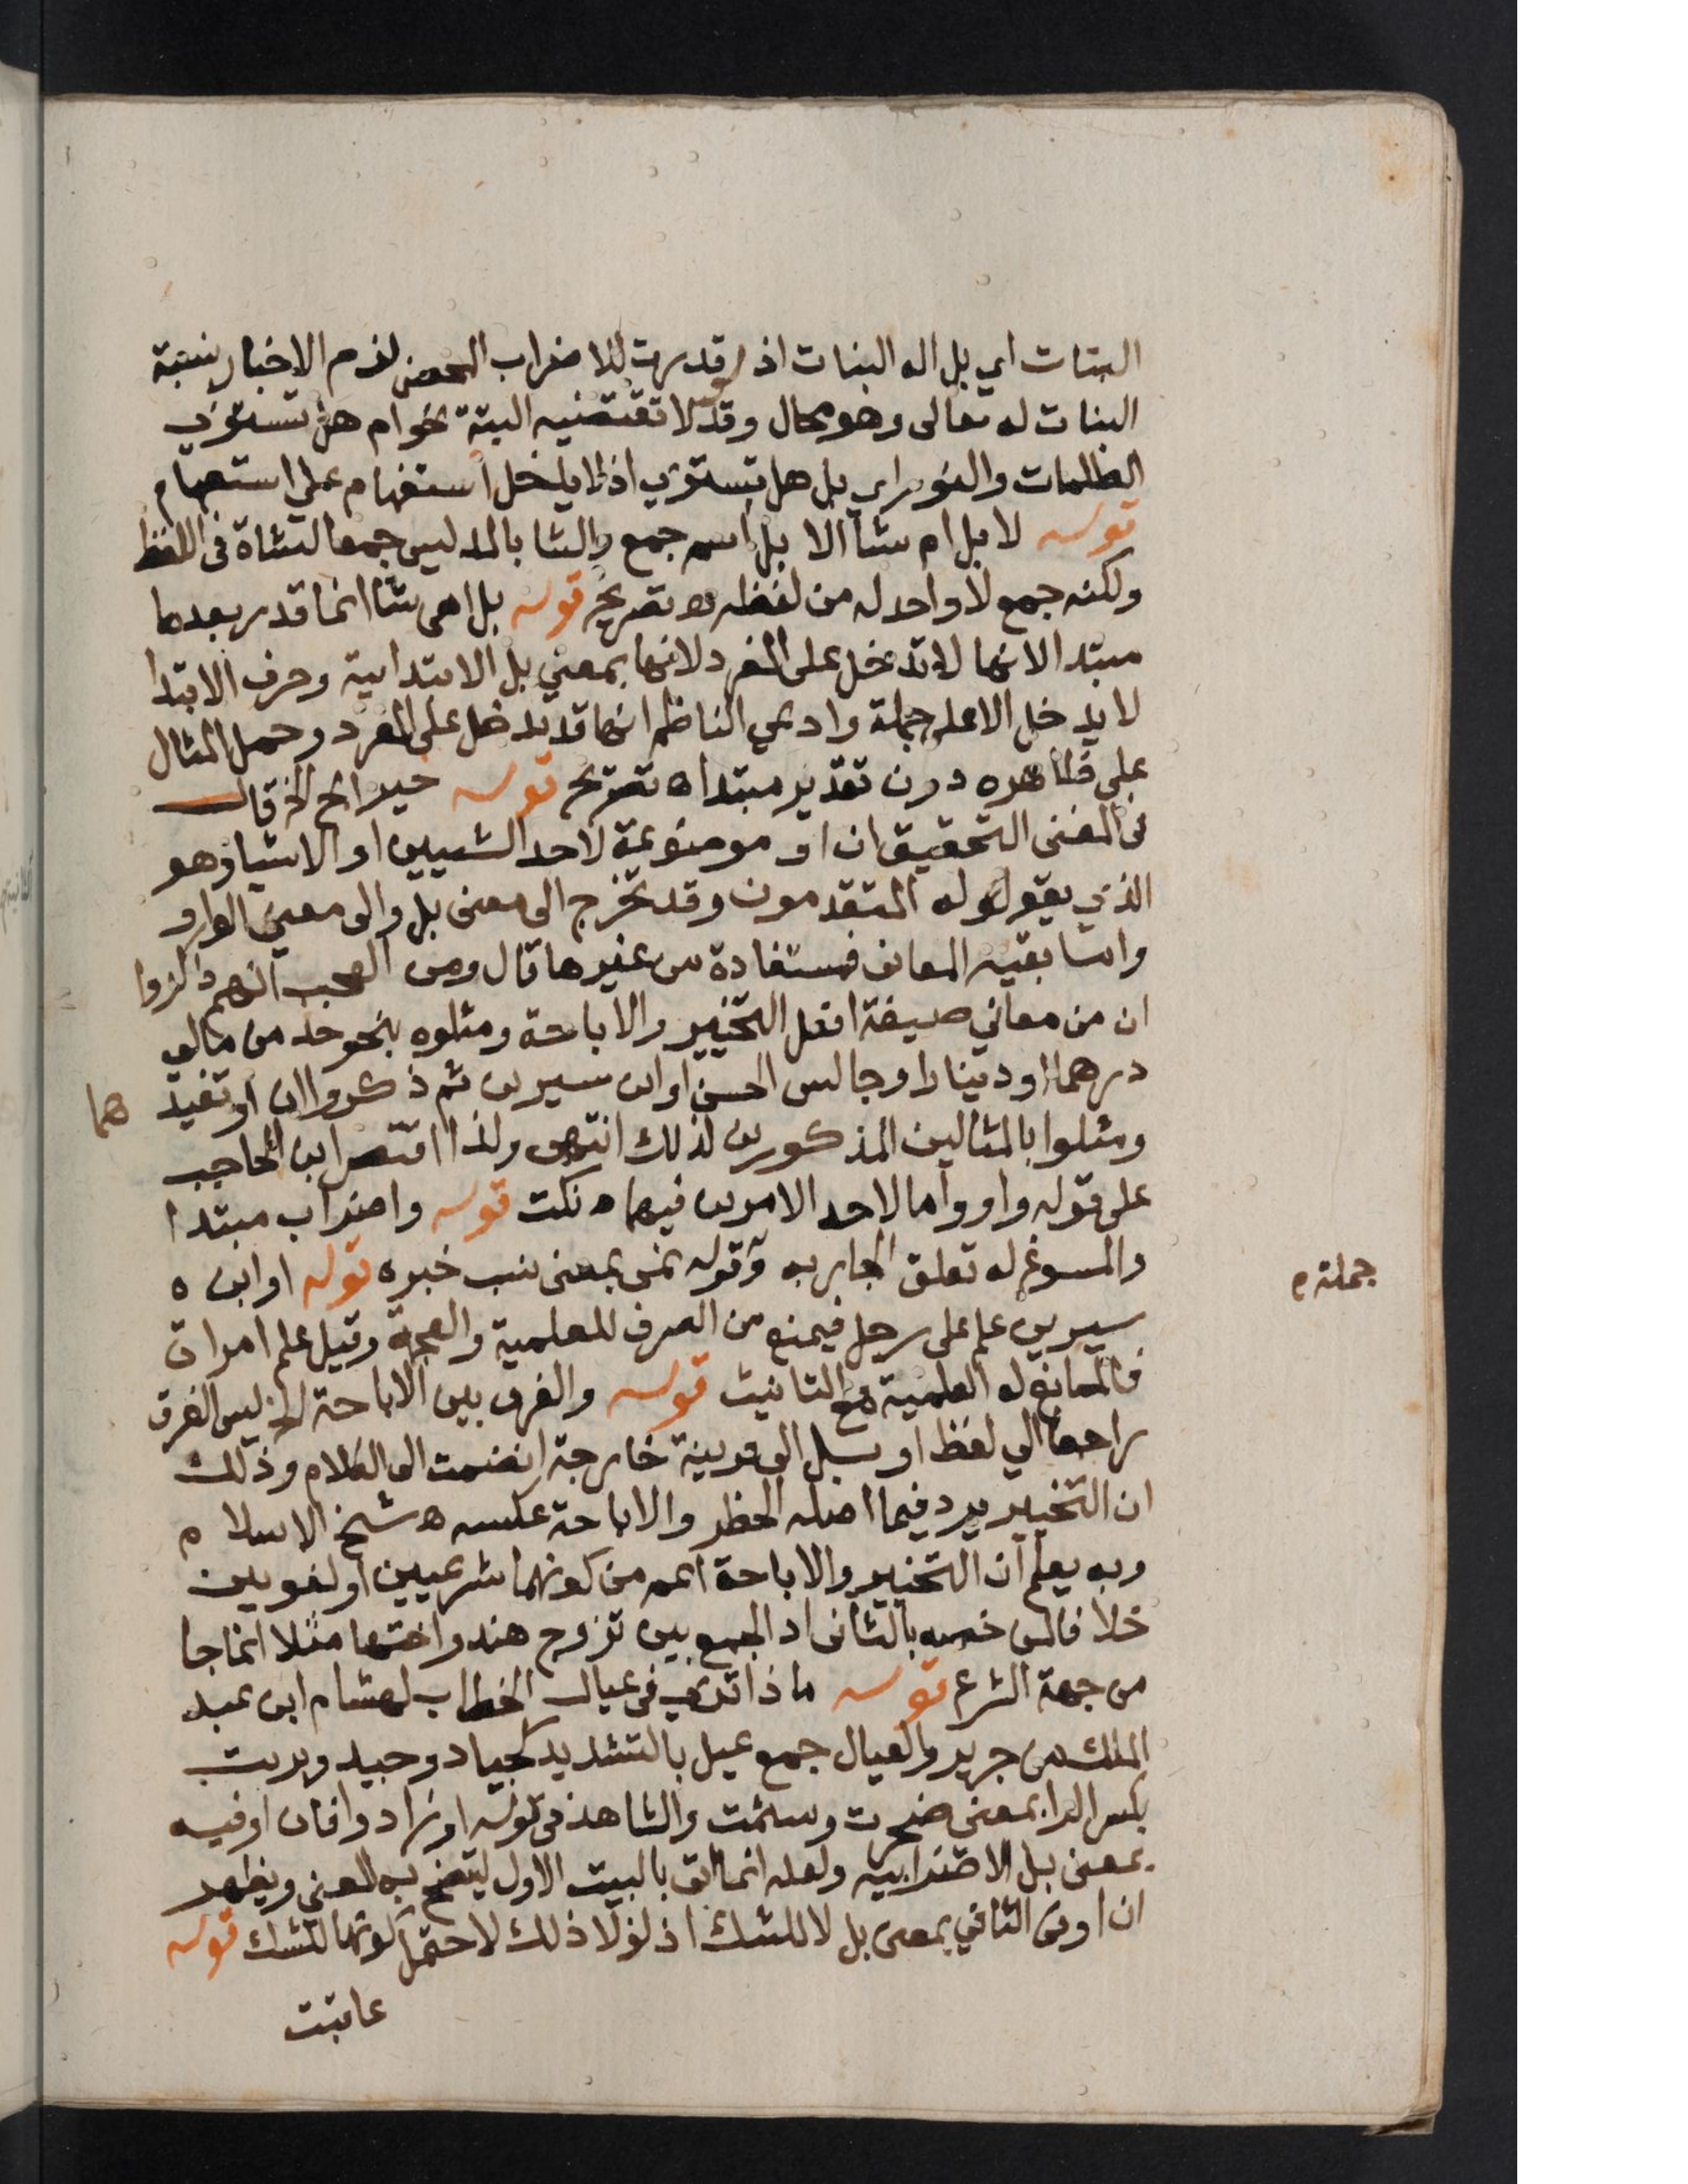 البنات اي بل اله البنات اذ لو قدرت للاضراب المحض لزم الاخبار بنسبة
البنات له تعالى وهو محال وقد لا تقتضيه البتة نحو ام هل تستوي
الظلمات والنور اي بل هل تستوي اذ لا يدخل استفهام على استفهام
قوله لابل ام شاء الا بل اسم جمع والشاء بالمد ليس جمعا لشاة في اللفظ
ولكنه جمع لا واحد له من لفظه ه تصريح قوله بل اهي شا انما قدر بعدها
مبتدا لانها لا تدخل على المفرد لانها بمعني بل الابتدائية وحرف الابتدا
لا يدخل الا على جملة وادعي الناظم انها قد تدخل على المفرد وحمل المثال
على ظاهره دون تقدير مبتدا ه تصريح قوله خير ابح الخ قال
في المغنى التحقيق ان او موضوعة لاحد الشيين او الاشيا وهو
الذي يقوله المتقدمون وقد تخرج الى معنى بل والى معني الواو
واما بقيه المعانى فمستفادة من غيرها قال ومن العجب انهم ذكروا
ان من معاني صيغة افعل التخيير والاباحة ومثلوه بنحو خذ من مالي
درهما او دينارا وجالس الحسن او ابن سيرين ثم ذكروا ان او تفيد هما
ومثلوا بالمثالين المذكورين لذلك انتهى ولذا اقتصر ابن الحاجب
على قوله واو واما لاحد الامرين فيهما ه نكت قوله واضراب مبتدا
والمسوغ له تعلق الجار به وقوله نمى بمعنى نسب خبره قوله او ابن ه
جملة ه
سيرين علم على رجل فيمنع من الصرف للعلمية والعجمة وقيل علم امراة
فالمانع له العلمية مع التانيث قوله والفرق بين الاباحة الخ ليس الفرق
راجعا الي لفظ او بل الى قرينة خارجة انضمت الى الكلام وذلك
ان التخيير يرد فيما اصله الحظر والاباحة عكسه ه شيخ الاسلام
وبه يعلم ان التخيير والاباحة اعم من كونهما شرعيين او لغويين
خلافا لمن خصه بالثانى اذ الجمع بين تزوج هند واختها مثلا انما جا
من جهة الشرع قوله ماذا ترى في عيال الخطاب لهشام ابن عبد
الملك من جرير والعيال جمع عيل بالتشديد كجياد وجيد وبرمت
بكسر الرا بمعنى ضجرت وسئمت والشاهد في قوله او زادوا فان او فيه
بمعنى بل الاضرابيه ولعله انما اتى بالبيت الاول ليتضح به المعنى ويظهر
ان او فى الثاني بمعنى بل لا للشك اذ لولا ذلك لاحتمل كونها للشك قوله
عاتبت